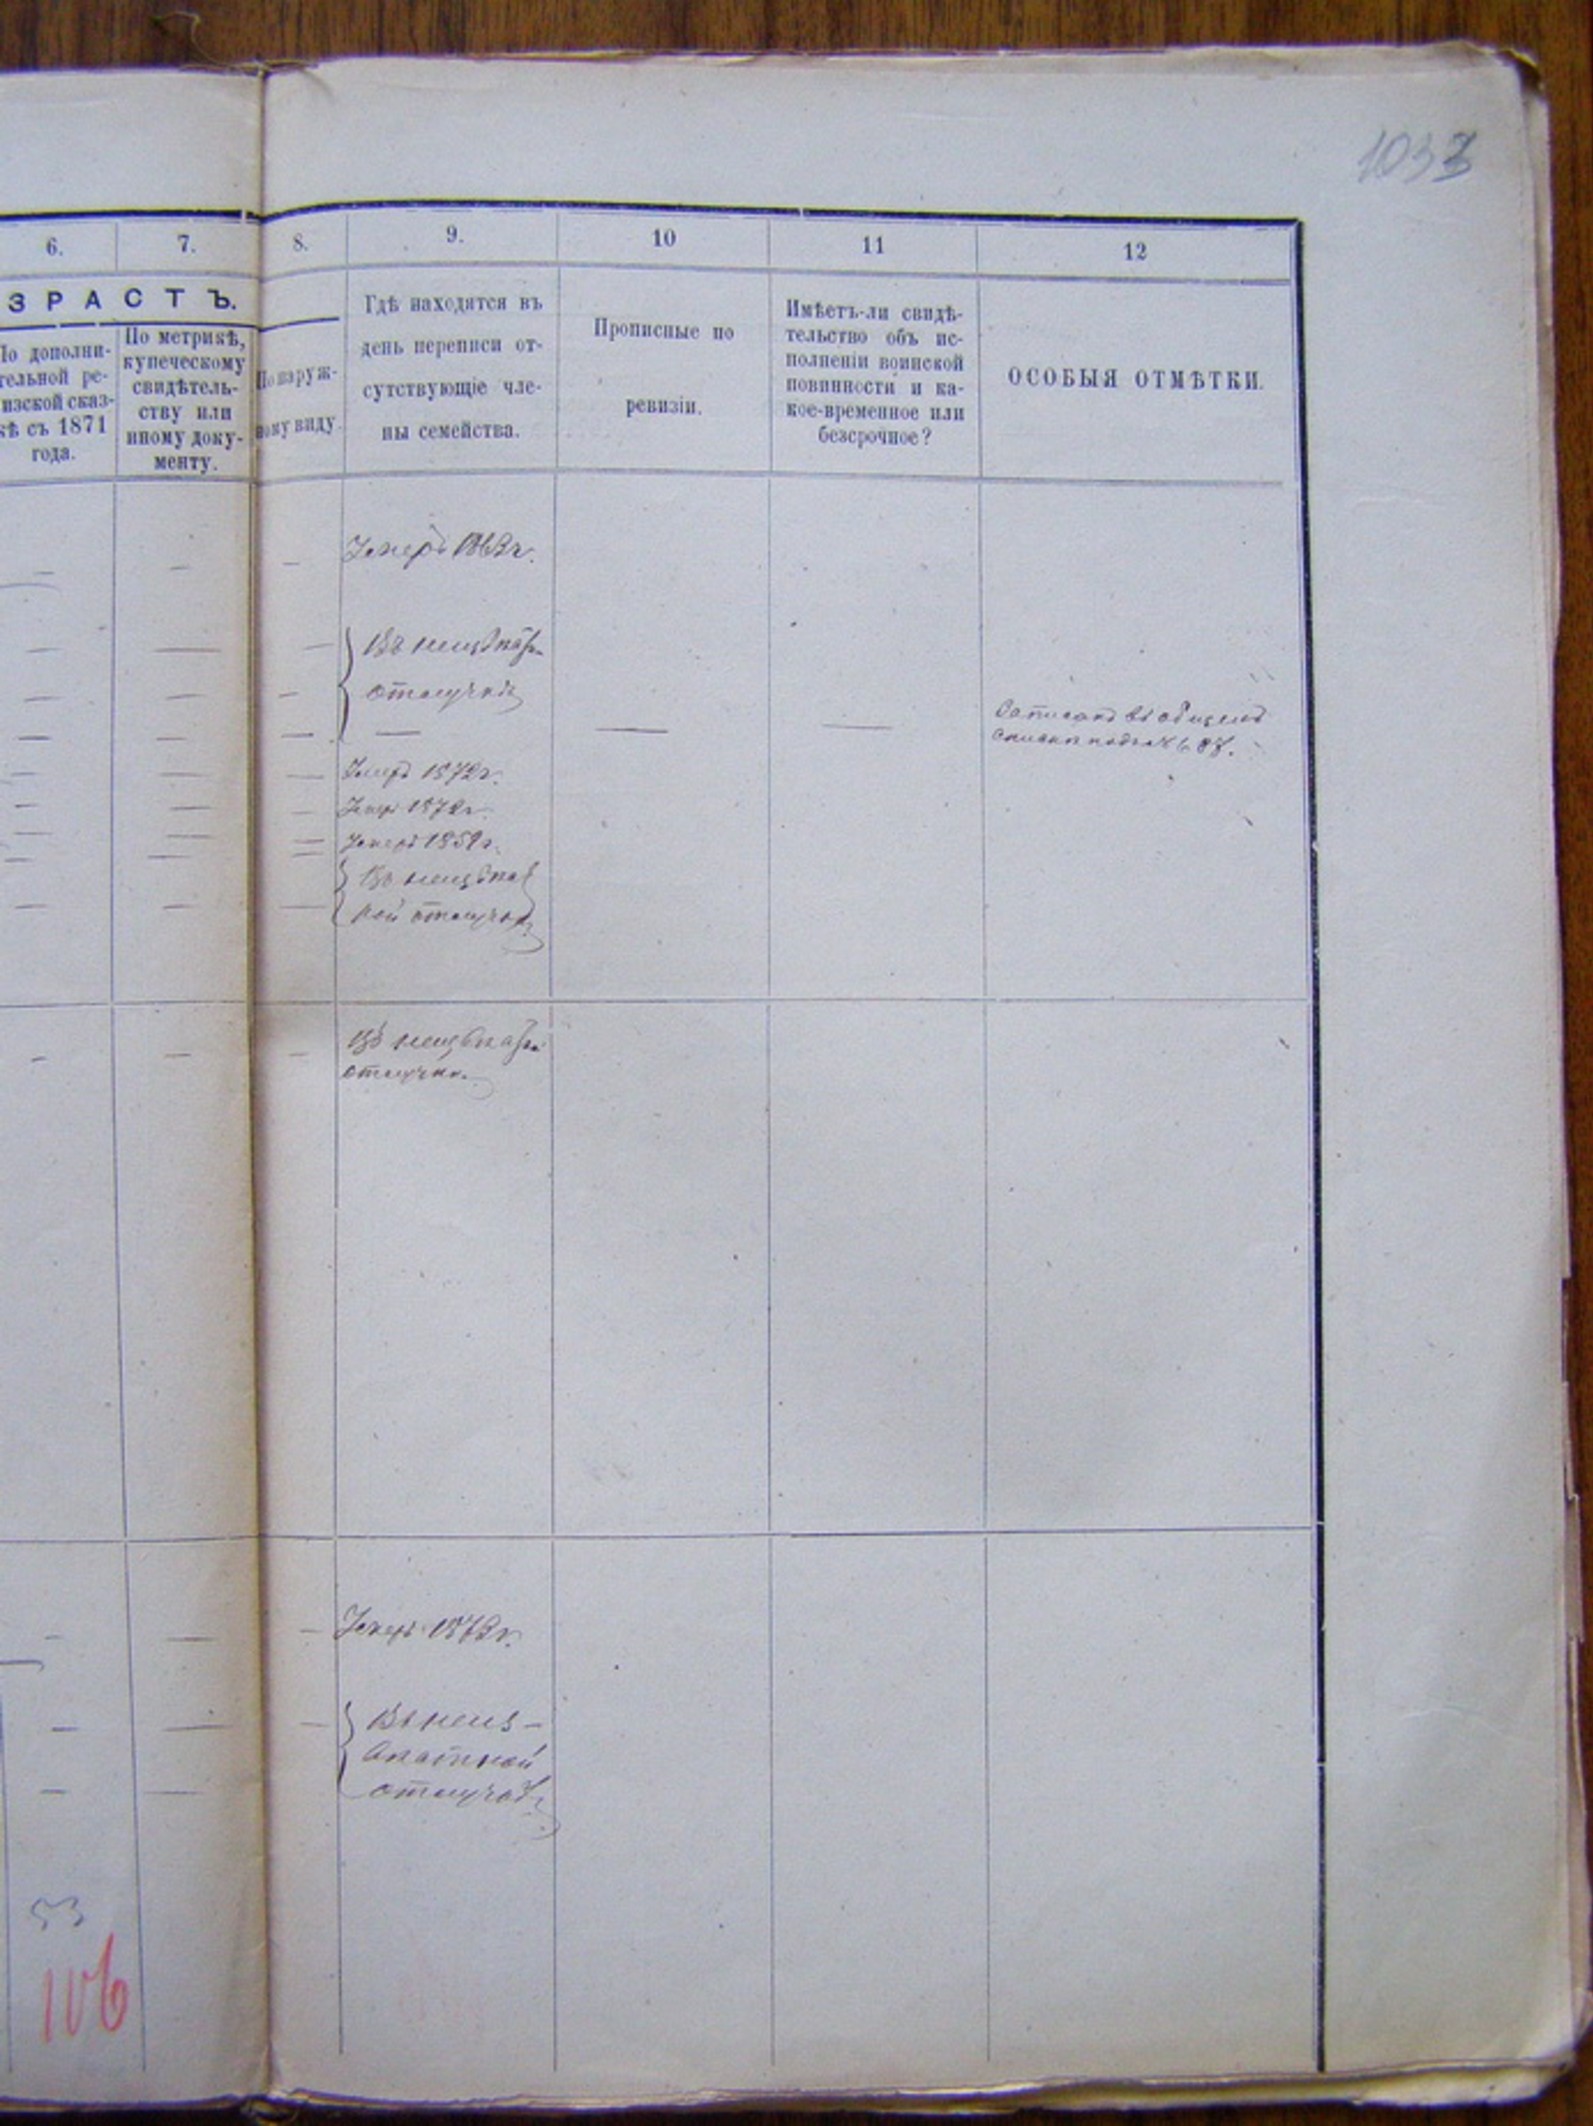 6.
7.
8.
9.
10
11
12
ЗРАСТЪ.
По дополни-
тельной ре-
изской сказ-
кѣ съ 1871
года.
По метрикѣ,
купеческому
свидѣтель-
ству или
иному доку-
менту.
По наруж-
ному виду.
Гдѣ находятся въ
день переписи от-
сутствующіе чле-
ны семейства.
Прописные по
ревизіи.
Имѣетъ-ли свидѣ-
тельство объ ис-
полненіи воинской
повинности и ка-
кое-временное или
безсрочное?
ОСОБЫЯ ОТМѢТКИ.
Умеръ
Въ неизвѣстн.
отлучкѣ
Записанъ въ общемъ
спискѣ подъ №
Умеръ 1872 г.
Умеръ 1872 г.
Умеръ 1859 г.
Въ неизвѣст
ной отлучкѣ
Въ неизвѣстн.
отлучкѣ.
Умеръ 1873 г.
Въ неиз-
вѣстной
отлучкѣ
53
106